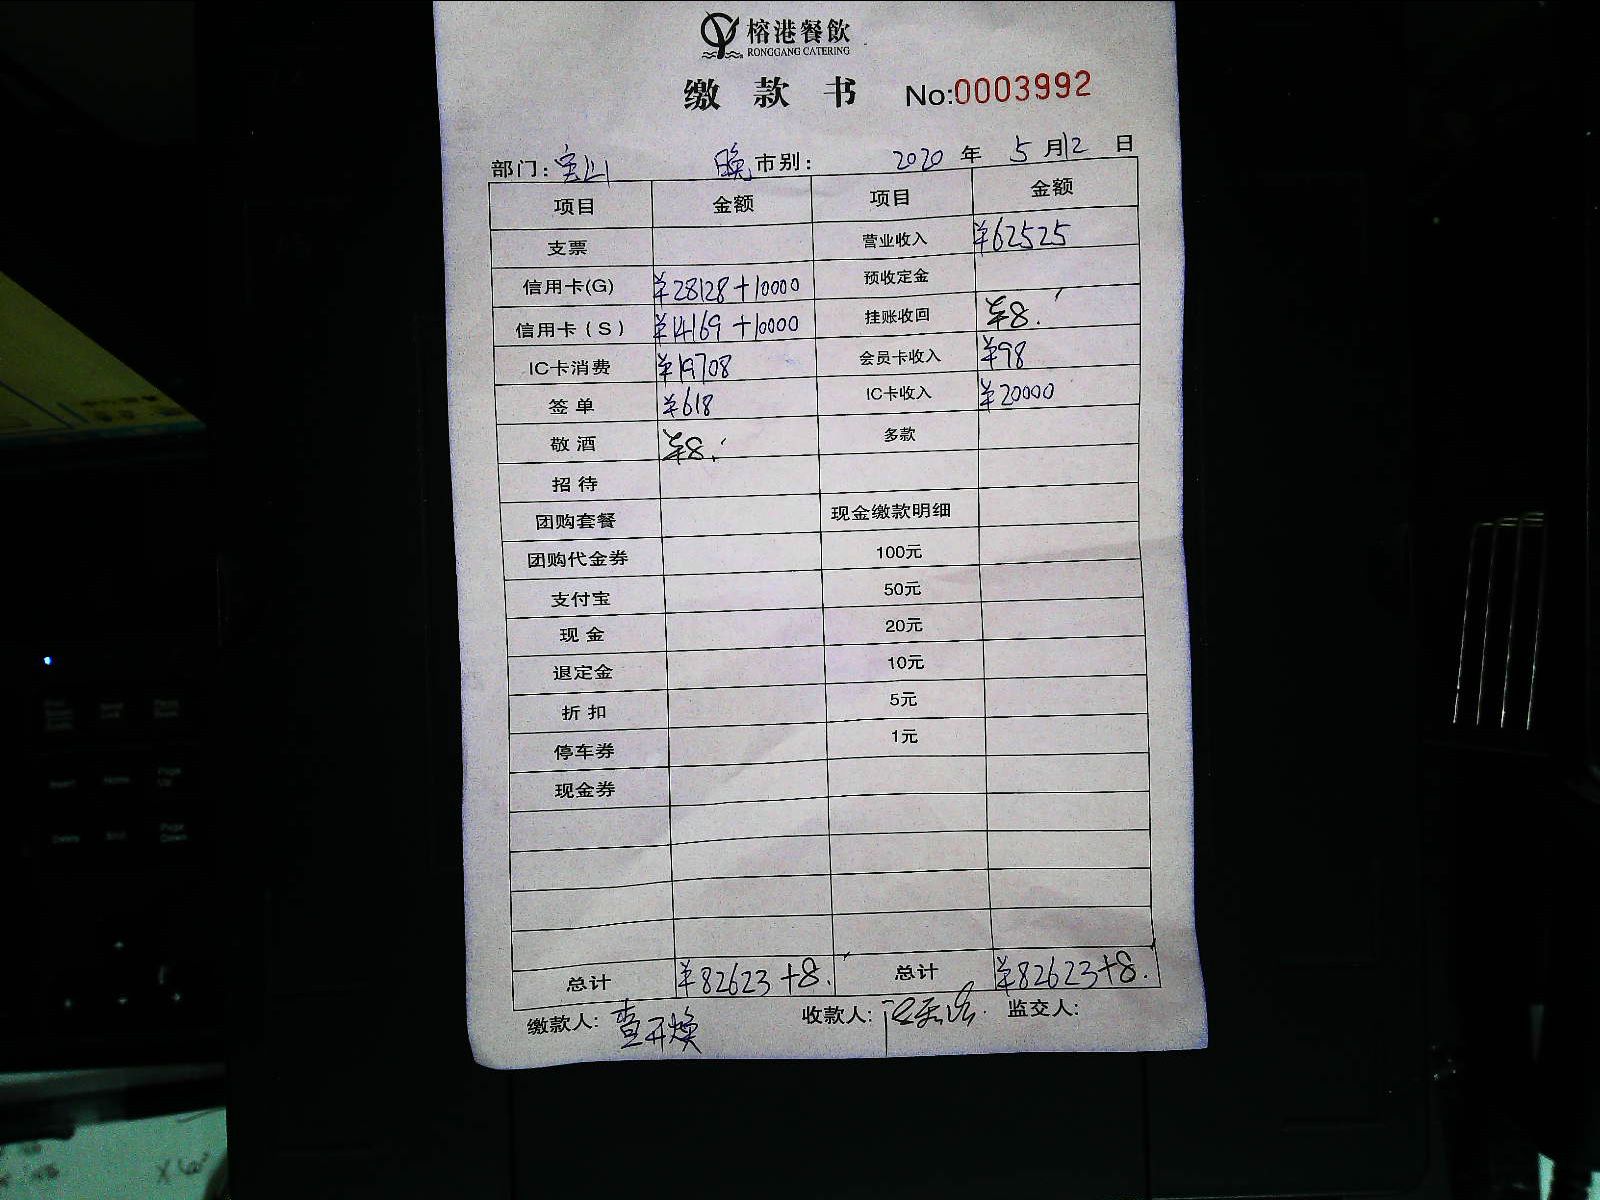 榕港餐飲
RONGGANG CATERING
缴 款 书 No:0003992
部门: 宝山 晚 市别: 2020 年 5 月 12 日
项目 金额 项目 金额
支票 营业收入 ¥62525
信用卡(G) ¥28128+10000 预收定金
信用卡(S) ¥14169+10000 挂账收回 ¥8.
IC卡消费 ¥19708 会员卡收入 ¥98
签 单 ¥618 IC卡收入 ¥20000
敬 酒 ¥8. 多款
招 待
团购套餐 现金缴款明细
团购代金券 100元
支付宝 50元
现 金 20元
退定金 10元
折 扣 5元
停车券 1元
现金券
总计 ¥82623+8. 总计 ¥82623+8.
缴款人: 查开焕 收款人: 监交人: